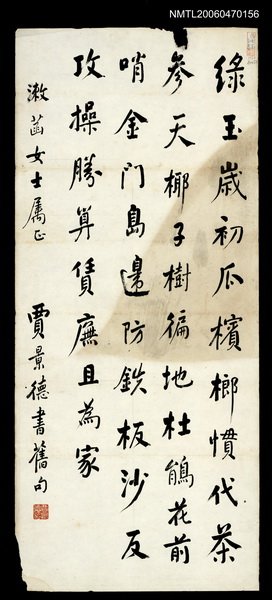 NMTL20060470156
綠玉歲初瓜檳榔慣代茶
參天椰子樹徧地杜鵑花前
哨金门島邊防鉄板沙反
攻操勝算賃廡且為家
漱菡女士属正
賈景德書舊句